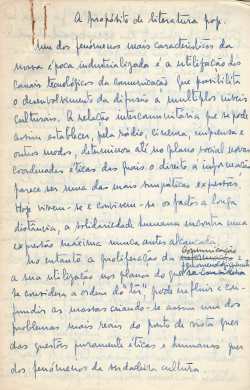 A propósito de literatura pop.
Um dos fenómenos mais característicos da
nossa época industrializada é a utilização dos
canais tecnológicos da comunicação que possibilita
o desenvolvimento da difusão a múltiplos níveis
culturais. A relação intercomunitária que se pode
assim estabelecer, pela rádio, cinema, imprensa e
outros modos, determinou até no plano social novas
coordenadas éticas das quais o direito à informação
parece ser uma das mais simpáticas expressões.
Hoje vivem-se e convivem-se os factos a longa
distância, a solidariedade humana encontra uma
expressão máxima nunca antes alcançada.
comunicação
No entanto a proliferação da
a sua utilização nos planos do que
se considera a ordem do "ter", pode influir e con-
fundir as massas criando-se assim um dos
problemas mais reais do ponto de vista quer
das questões puramente éticas e humanas quer
dos fenómenos de verdadeira cultura.